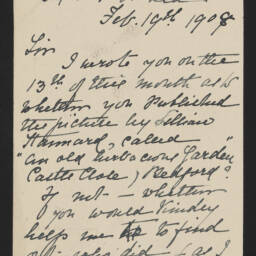 Feb. 19th 1908
Sir
I wrote you on the
13th of this month as to
whether you Published
the picture by Lilian
Stannard, called
"an old Garden
Castle Close, Bedford"?
If not — whether
you would kindly
help me to find
who did (as I